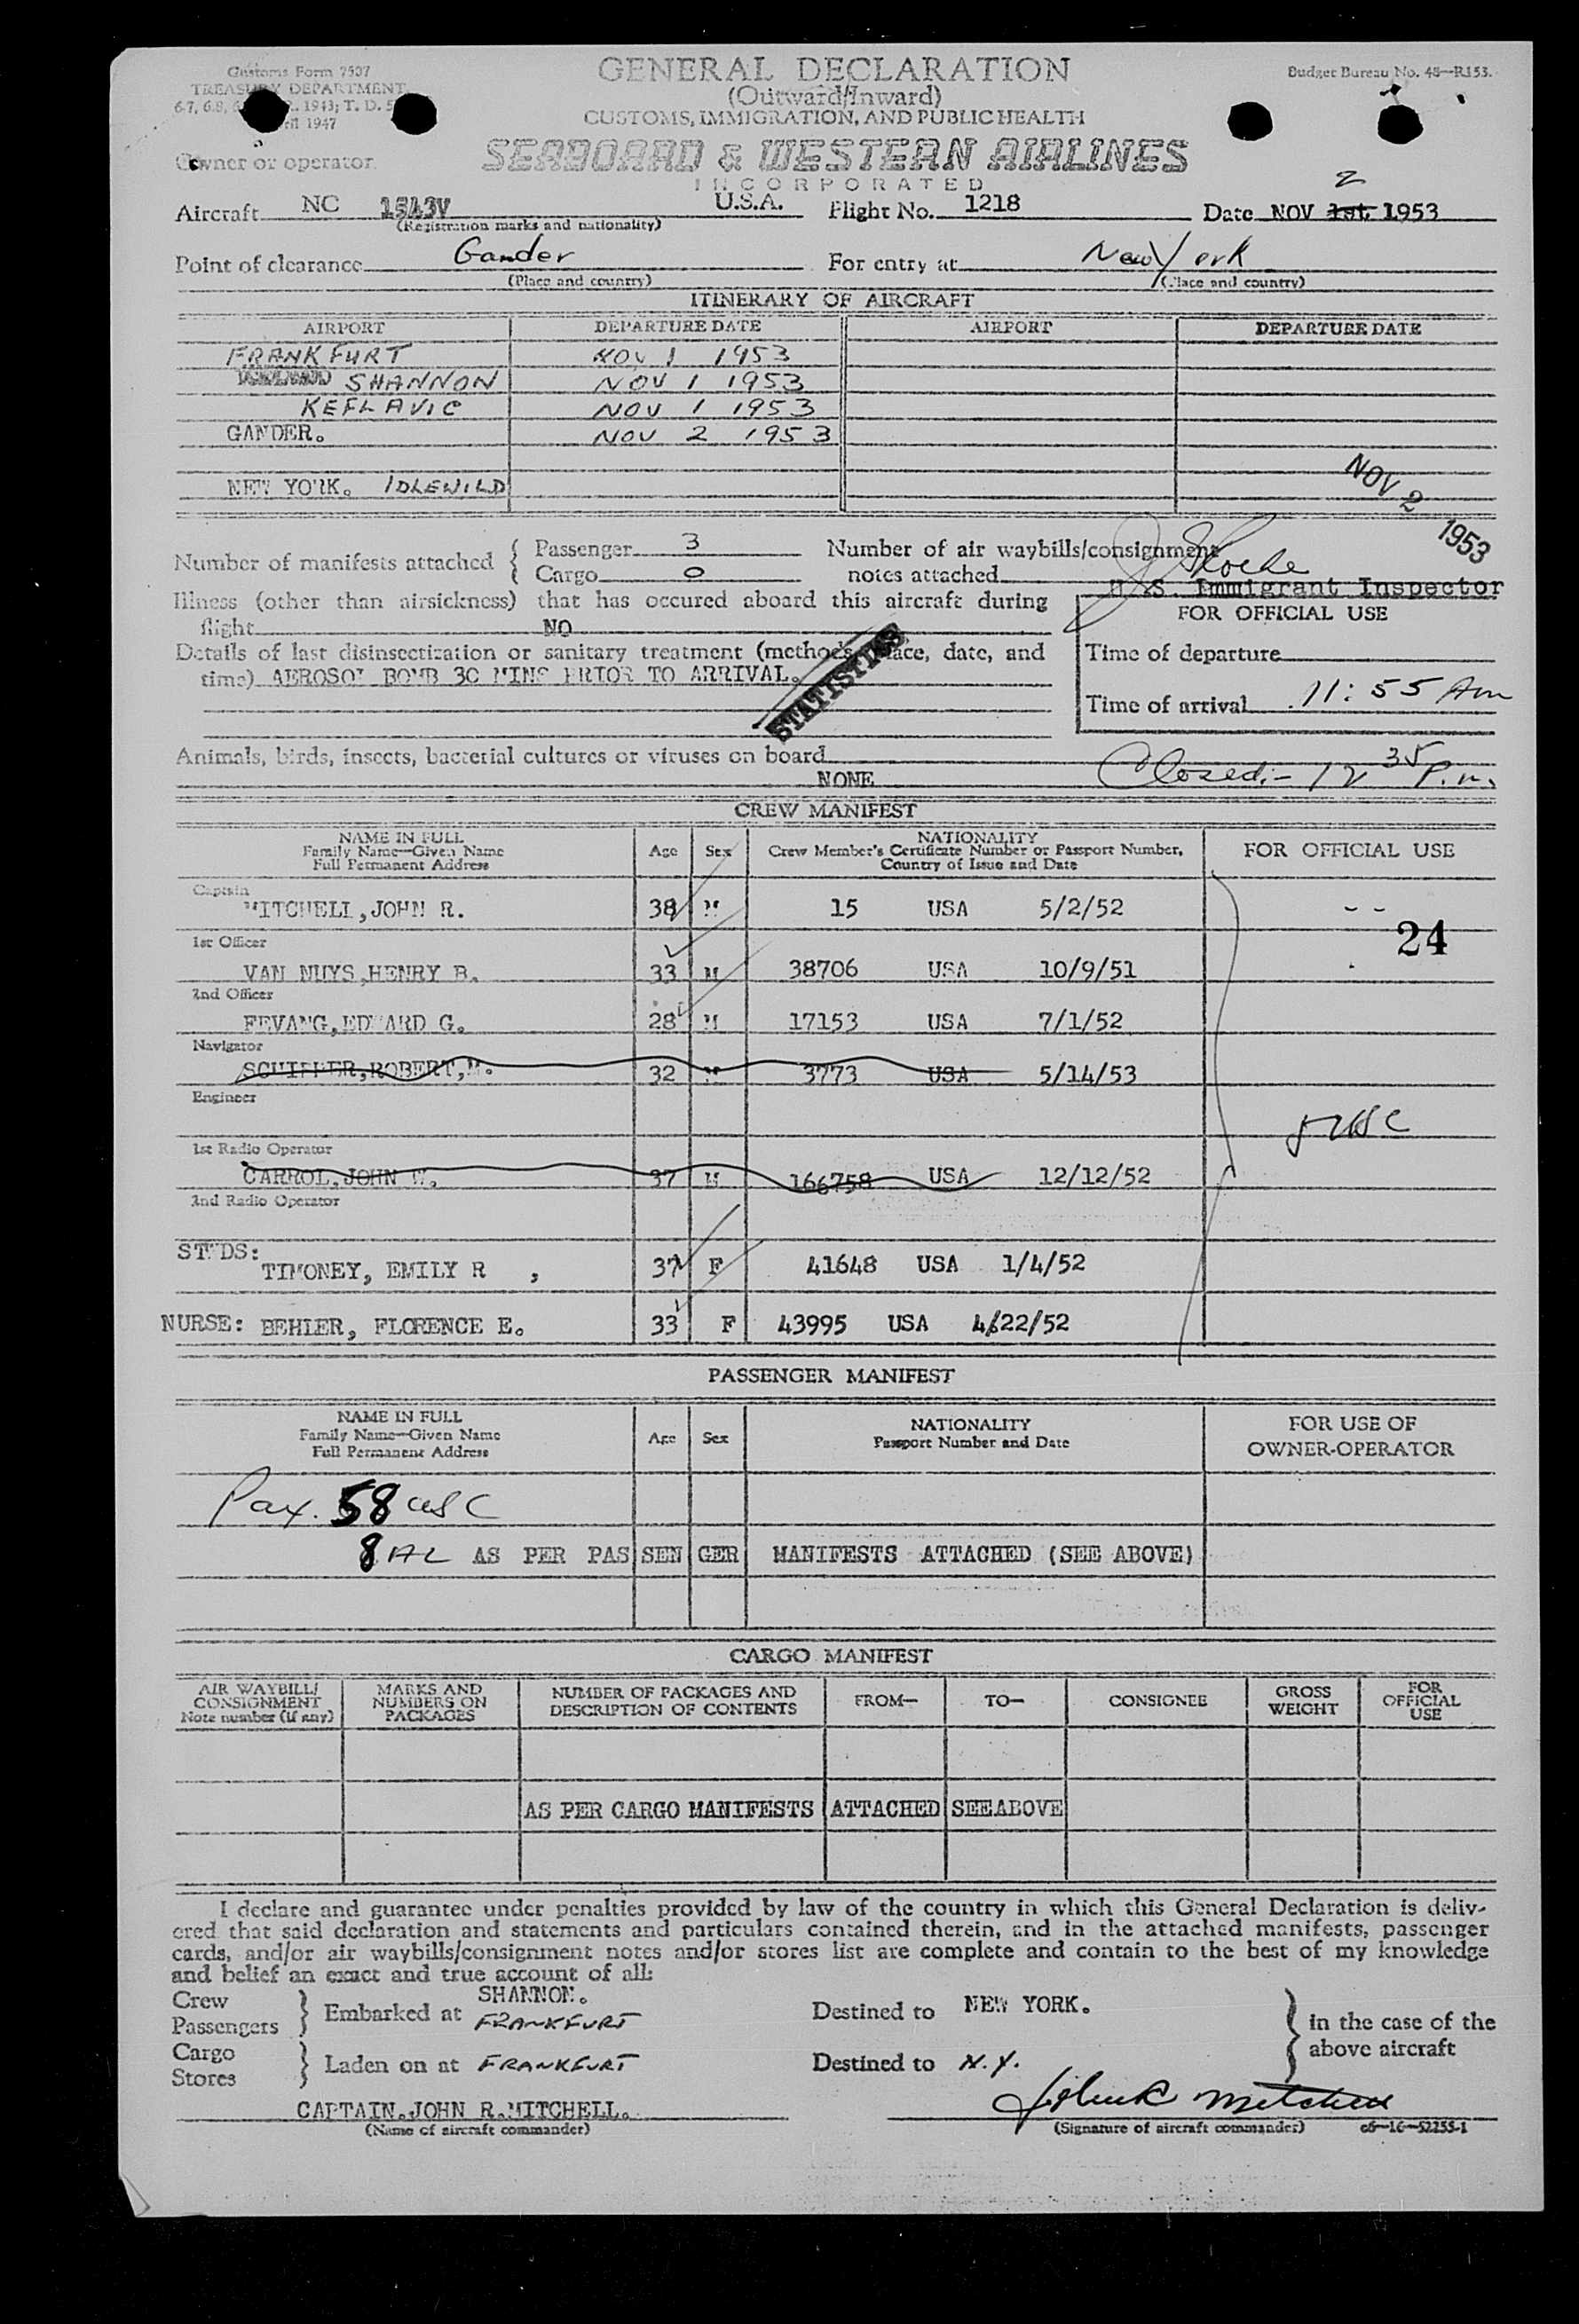 Customs Form 7507
TREASURY DEPARTMENT
1943; T. D.
1947
GENERAL DECLARATION
(Outward/Inward)
CUSTOMS, IMMIGRATION, AND PUBLIC HEALTH
Budget Bureau No. 48—R153.
Owner or operator
SEABOARD & WESTERN AIRLINES
INCORPORATED
Aircraft NC 1543V U.S.A. Flight No. 1218 Date NOV 1st 2 1953
(Registration marks and nationality)
Point of clearance Gander For entry at New York
(Place and country) (Place and country)
ITINERARY OF AIRCRAFT
AIRPORT DEPARTURE DATE AIRPORT DEPARTURE DATE
FRANKFURT NOV 1 1953
SHANNON NOV 1 1953
KEFLAVIC NOV 1 1953
GANDER. NOV 2 1953
NEW YORK. IDLEWILD
NOV 2 1953
Number of manifests attached { Passenger 3
Cargo 0
Number of air waybills/consignment
notes attached
U. S. Immigrant Inspector
Illness (other than airsickness) that has occured aboard this aircraft during
flight NO
Details of last disinsectization or sanitary treatment (methods, place, date, and
time) AEROSOL BOMB 30 MINS PRIOR TO ARRIVAL.
STATISTICS
FOR OFFICIAL USE
Time of departure
Time of arrival 11:55 Am
Animals, birds, insects, bacterial cultures or viruses on board
NONE
Closed:- 12 35 P.m.
CREW MANIFEST
NAME IN FULL
Family Name—Given Name
Full Permanent Address
Age Sex
NATIONALITY
Crew Member's Certificate Number or Passport Number,
Country of Issue and Date
FOR OFFICIAL USE
Captain
MITCHELL,JOHN R. 38 M 15 USA 5/2/52
24
1st Officer
VAN NUYS,HENRY B. 33 M 38706 USA 10/9/51
2nd Officer
FEVANG,EDWARD G. 28 M 17153 USA 7/1/52
Navigator
SCHIPPER,ROBERT,M. 32 M 3773 USA 5/14/53
Engineer
5 USC
1st Radio Operator
CARROL,JOHN W. 37 M 166758 USA 12/12/52
2nd Radio Operator
STWDS:
TIMONEY, EMILY R , 37 F 41648 USA 1/4/52
NURSE: BEHLER, FLORENCE E. 33 F 43995 USA 4/22/52
PASSENGER MANIFEST
NAME IN FULL
Family Name—Given Name
Full Permanent Address
Age Sex
NATIONALITY
Passport Number and Date
FOR USE OF
OWNER-OPERATOR
Pax. 58 USC
8 AL AS PER PASSENGER MANIFESTS ATTACHED (SEE ABOVE)
CARGO MANIFEST
AIR WAYBILL/
CONSIGNMENT
Note number (if any)
MARKS AND
NUMBERS ON
PACKAGES
NUMBER OF PACKAGES AND
DESCRIPTION OF CONTENTS
FROM—
TO—
CONSIGNEE
GROSS
WEIGHT
FOR
OFFICIAL
USE
AS PER CARGO MANIFESTS ATTACHED SEE ABOVE
I declare and guarantee under penalties provided by law of the country in which this General Declaration is deliv-
ered that said declaration and statements and particulars contained therein, and in the attached manifests, passenger
cards, and/or air waybills/consignment notes and/or stores list are complete and contain to the best of my knowledge
and belief an exact and true account of all:
Crew
Passengers } Embarked at SHANNON. FRANKFURT Destined to NEW YORK.
Cargo
Stores } Laden on at FRANKFURT Destined to N.Y.
} in the case of the
above aircraft
CAPTAIN.JOHN R.MITCHELL. John R Mitchell
(Name of aircraft commander) (Signature of aircraft commander) c6—16—52255-1